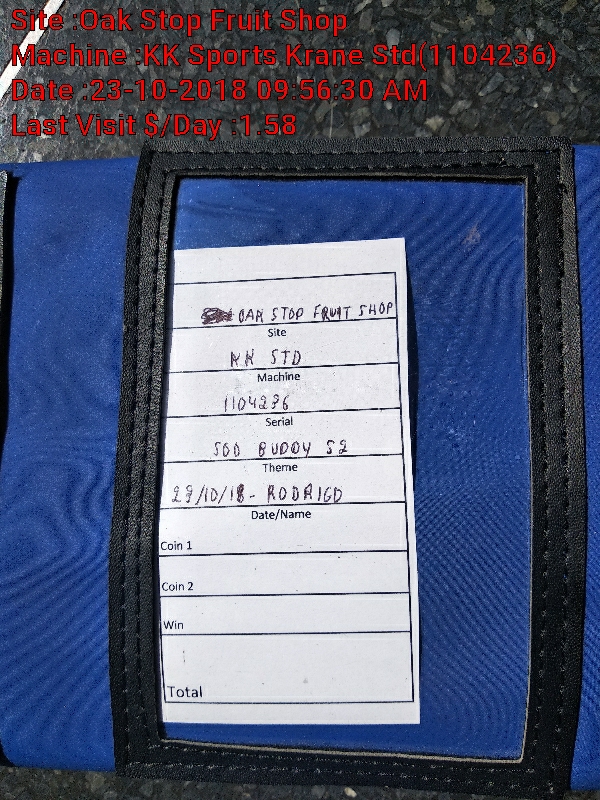 Site :Oak Stop Fruit Shop
Machine :KK Sports Krane Std(1104236)
Date :23-10-2018 09:56:30 AM
Last Visit $/Day :1.58
OAK STOP FRUIT SHOP
Site
KK STD
Machine
1104236
Serial
SOD BUDDY S2
Theme
23/10/18- RODRIGO
Date/Name
Coin 1
Coin 2
Win
Total